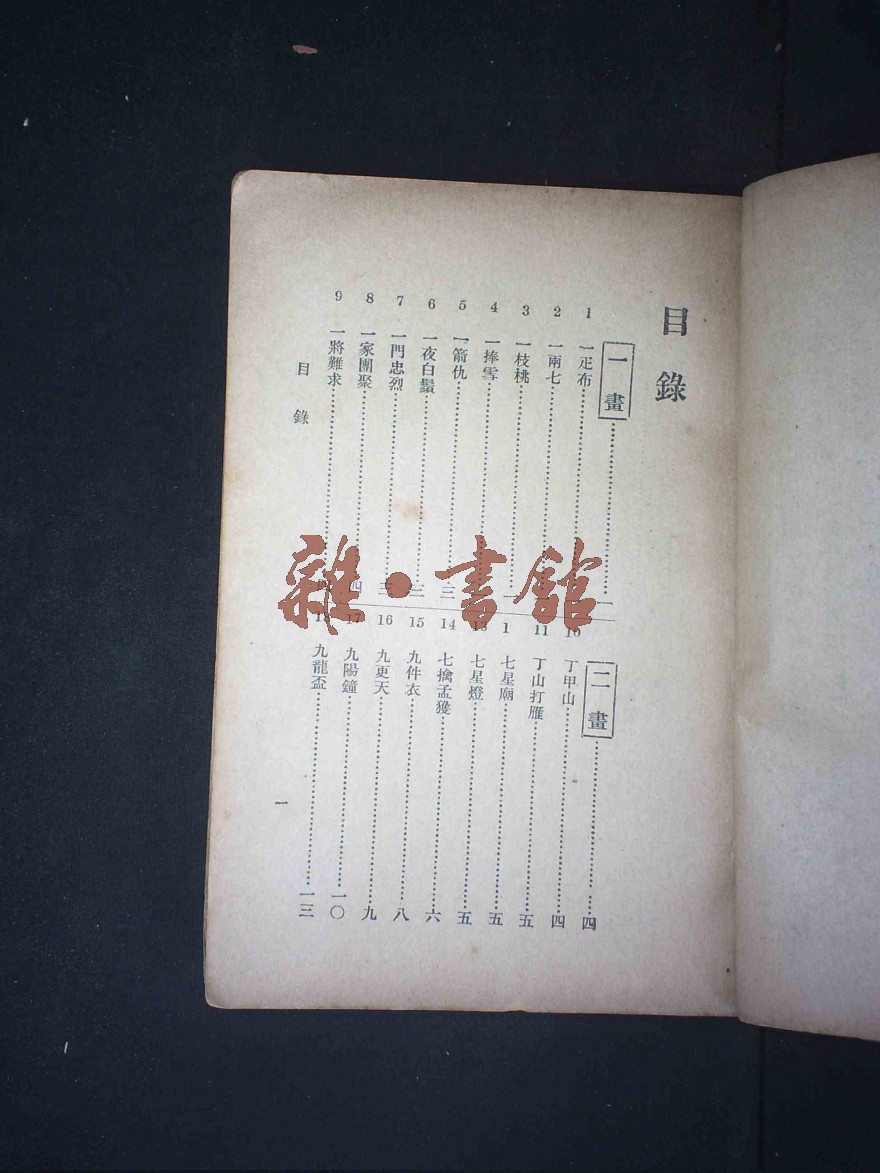 目錄
一畫……一
1 一疋布
2 一兩七
3 一枝桃……一
4 一捧雪
5 一箭仇……三
6 一夜白鬚……三
7 一門忠烈……三
8 一家團聚……四
9 一將難求……四
二畫……四
10 丁甲山……四
11 丁山打雁……五
1 七星廟……五
13 七星燈……五
14 七擒孟獲……六
15 九件衣……八
16 九更天……九
17 九陽鐘……一〇
18 九龍盃……一三
目錄
一
雜·書館